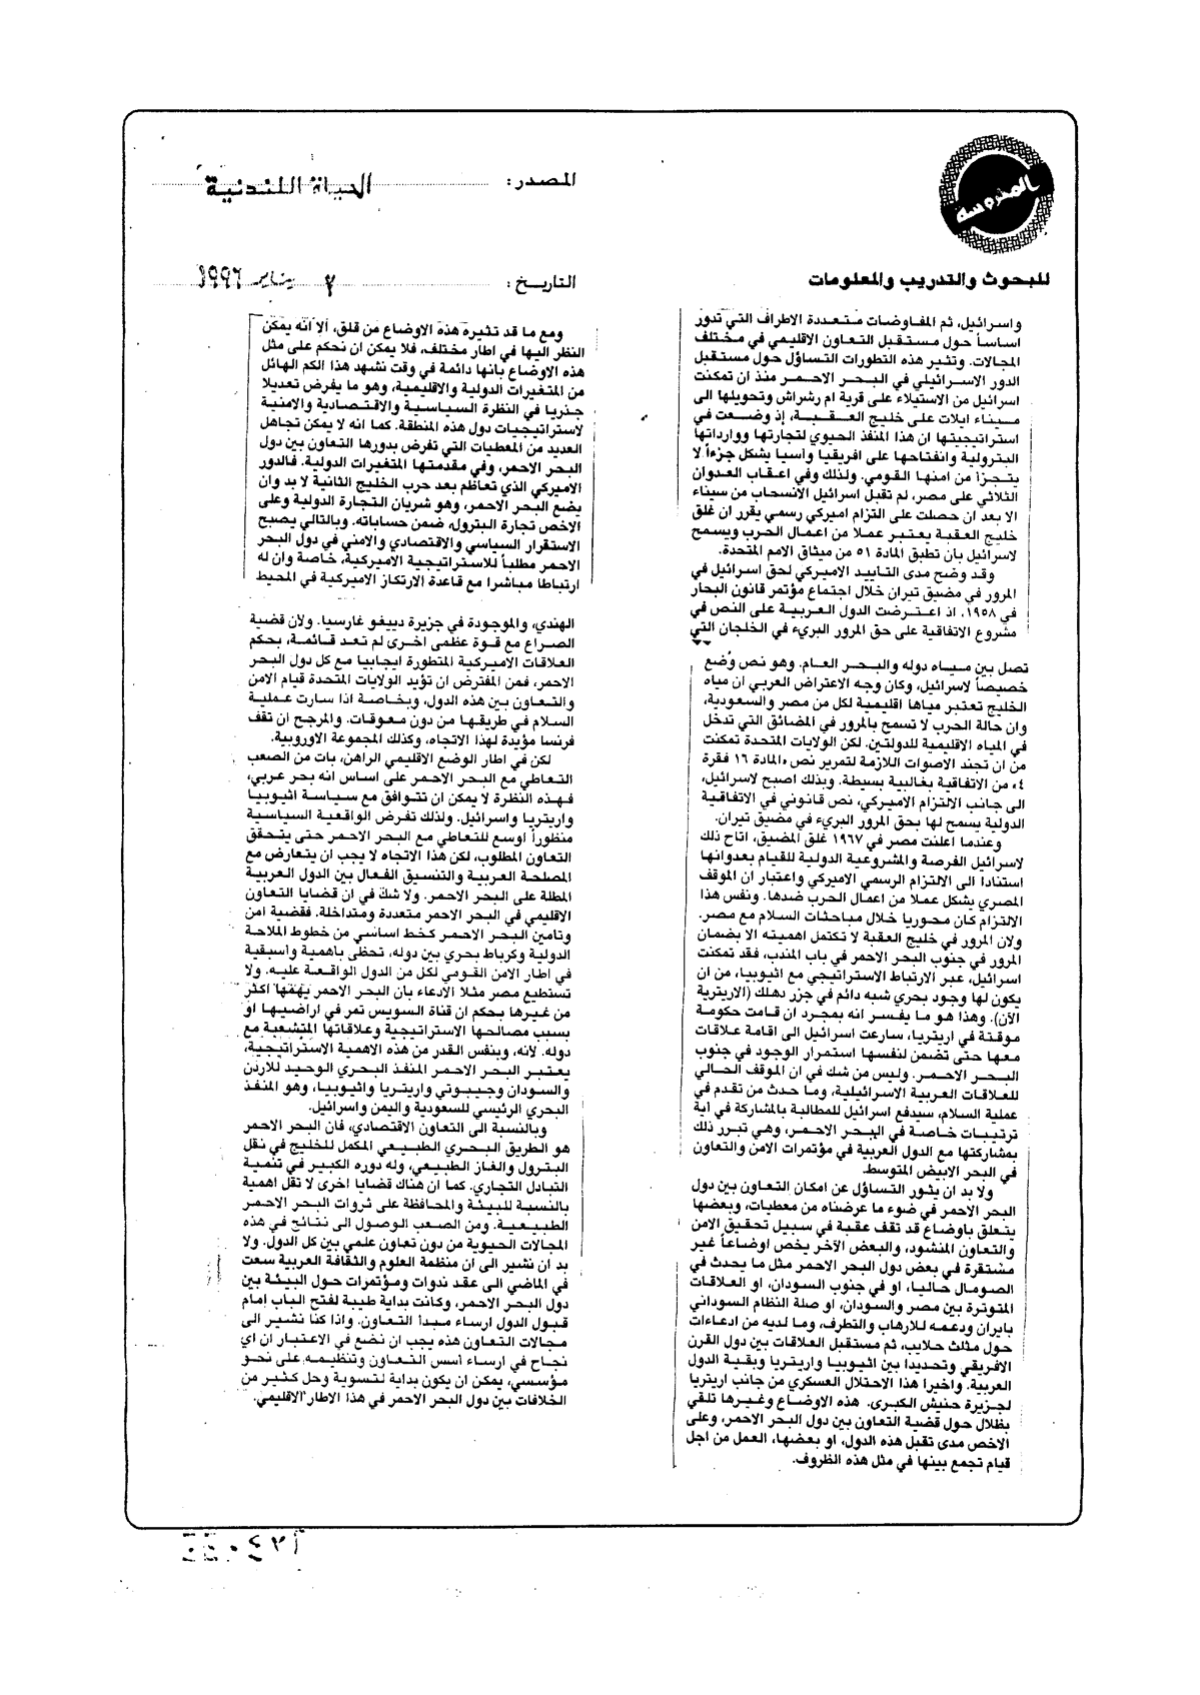 المحروسة
للبحوث والتدريب والمعلومات
المصدر: الحياة اللندنية
التاريخ: ٢ يناير ١٩٩٦
واسرائيل، ثم المفاوضات متعددة الاطراف التي تدور
اساساً حول مستقبل التعاون الاقليمي في مختلف
المجالات. وتثير هذه التطورات التساؤل حول مستقبل
الدور الاسرائيلي في البحر الاحمر منذ ان تمكنت
اسرائيل من الاستيلاء على قرية ام رشراش وتحويلها الى
ميناء ايلات على خليج العقبة، إذ وضعت في
استراتيجيتها ان هذا المنفذ الحيوي لتجارتها ووارداتها
البترولية وانفتاحها على افريقيا واسيا يشكل جزءاً لا
يتجزأ من امنها القومي. ولذلك وفي اعقاب العدوان
الثلاثي على مصر، لم تقبل اسرائيل الانسحاب من سيناء
الا بعد ان حصلت على التزام اميركي رسمي يقرر ان غلق
خليج العقبة يعتبر عملا من اعمال الحرب ويسمح
لاسرائيل بان تطبق المادة ٥١ من ميثاق الامم المتحدة.
وقد وضح مدى التاييد الاميركي لحق اسرائيل في
المرور في مضيق تيران خلال اجتماع مؤتمر قانون البحار
في ١٩٥٨، اذ اعترضت الدول العربية على النص في
مشروع الاتفاقية على حق المرور البريء في الخلجان التي
تصل بين مياه دوله والبحر العام. وهو نص وُضع
خصيصاً لاسرائيل، وكان وجه الاعتراض العربي ان مياه
الخليج تعتبر مياها اقليمية لكل من مصر والسعودية،
وان حالة الحرب لا تسمح بالمرور في المضائق التي تدخل
في المياه الاقليمية للدولتين. لكن الولايات المتحدة تمكنت
من ان تجند الاصوات اللازمة لتمرير نص «المادة ١٦ فقرة
٤» من الاتفاقية بغالبية بسيطة. وبذلك اصبح لاسرائيل،
الى جانب الالتزام الاميركي، نص قانوني في الاتفاقية
الدولية يسمح لها بحق المرور البريء في مضيق تيران.
وعندما اعلنت مصر في ١٩٦٧ غلق المضيق، اتاح ذلك
لاسرائيل الفرصة والمشروعية الدولية للقيام بعدوانها
استنادا الى الالتزام الرسمي الاميركي واعتبار ان الموقف
المصري يشكل عملا من اعمال الحرب ضدها. ونفس هذا
الالتزام كان محوريا خلال مباحثات السلام مع مصر.
ولان المرور في خليج العقبة لا تكتمل اهميته الا بضمان
المرور في جنوب البحر الاحمر في باب المندب، فقد تمكنت
اسرائيل، عبر الارتباط الاستراتيجي مع اثيوبيا، من ان
يكون لها وجود بحري شبه دائم في جزر دهلك (الاريترية
الآن). وهذا هو ما يفسر انه بمجرد ان قامت حكومة
موقتة في اريتريا، سارعت اسرائيل الى اقامة علاقات
معها حتى تضمن لنفسها استمرار الوجود في جنوب
البحر الاحمر. وليس من شك في ان الموقف الحالي
للعلاقات العربية الاسرائيلية، وما حدث من تقدم في
عملية السلام، سيدفع اسرائيل للمطالبة بالمشاركة في اية
ترتيبات خاصة في البحر الاحمر، وهي تبرر ذلك
بمشاركتها مع الدول العربية في مؤتمرات الامن والتعاون
في البحر الابيض المتوسط.
ولا بد ان يثور التساؤل عن امكان التعاون بين دول
البحر الاحمر في ضوء ما عرضناه من معطيات، وبعضها
يتعلق باوضاع قد تقف عقبة في سبيل تحقيق الامن
والتعاون المنشود، والبعض الآخر يخص اوضاعاً غير
مستقرة في بعض دول البحر الاحمر مثل ما يحدث في
الصومال حاليا، او في جنوب السودان، او العلاقات
المتوترة بين مصر والسودان، او صلة النظام السوداني
بايران ودعمه للارهاب والتطرف، وما لديه من ادعاءات
حول مثلث حلايب، ثم مستقبل العلاقات بين دول القرن
الافريقي وتحديدا بين اثيوبيا واريتريا وبقية الدول
العربية. واخيرا هذا الاحتلال العسكري من جانب اريتريا
لجزيرة حنيش الكبرى. هذه الاوضاع وغيرها تلقي
بظلال حول قضية التعاون بين دول البحر الاحمر، وعلى
الاخص مدى تقبل هذه الدول، او بعضها، العمل من اجل
قيام تجمع بينها في مثل هذه الظروف.
ومع ما قد تثيره هذه الاوضاع من قلق، ألا انه يمكن
النظر اليها في اطار مختلف، فلا يمكن ان نحكم على مثل
هذه الاوضاع بانها دائمة في وقت نشهد هذا الكم الهائل
من المتغيرات الدولية والاقليمية، وهو ما يفرض تعديلا
جذريا في النظرة السياسية والاقتصادية والامنية
لاستراتيجيات دول هذه المنطقة. كما انه لا يمكن تجاهل
العديد من المعطيات التي تفرض بدورها التعاون بين دول
البحر الاحمر، وفي مقدمتها المتغيرات الدولية. فالدور
الاميركي الذي تعاظم بعد حرب الخليج الثانية لا بد وان
يضع البحر الاحمر، وهو شريان التجارة الدولية وعلى
الاخص تجارة البترول، ضمن حساباته. وبالتالي يصبح
الاستقرار السياسي والاقتصادي والامني في دول البحر
الاحمر مطلباً للاستراتيجية الاميركية، خاصة وان له
ارتباطا مباشرا مع قاعدة الارتكاز الاميركية في المحيط
الهندي، والموجودة في جزيرة دييغو غارسيا. ولان قضية
الصراع مع قوة عظمى اخرى لم تعد قائمة، بحكم
العلاقات الاميركية المتطورة ايجابيا مع كل دول البحر
الاحمر، فمن المفترض ان تؤيد الولايات المتحدة قيام الامن
والتعاون بين هذه الدول، وبخاصة اذا سارت عملية
السلام في طريقها من دون معوقات. والمرجح ان تقف
فرنسا مؤيدة لهذا الاتجاه، وكذلك المجموعة الاوروبية.
لكن في اطار الوضع الاقليمي الراهن، بات من الصعب
التعاطي مع البحر الاحمر على اساس انه بحر عربي،
فهذه النظرة لا يمكن ان تتوافق مع سياسة اثيوبيا
واريتريا واسرائيل. ولذلك تفرض الواقعية السياسية
منظوراً اوسع للتعاطي مع البحر الاحمر حتى يتحقق
التعاون المطلوب، لكن هذا الاتجاه لا يجب ان يتعارض مع
المصلحة العربية والتنسيق الفعال بين الدول العربية
المطلة على البحر الاحمر. ولا شك في ان قضايا التعاون
الاقليمي في البحر الاحمر متعددة ومتداخلة. فقضية امن
وتامين البحر الاحمر كخط اساسي من خطوط الملاحة
الدولية وكرباط بحري بين دوله، تحظى باهمية واسبقية
في اطار الامن القومي لكل من الدول الواقعة عليه. ولا
تستطيع مصر مثلا الادعاء بان البحر الاحمر يهمها اكثر
من غيرها بحكم ان قناة السويس تمر في اراضيها او
بسبب مصالحها الاستراتيجية وعلاقاتها المتشعبة مع
دوله. لانه، وبنفس القدر من هذه الاهمية الاستراتيجية،
يعتبر البحر الاحمر المنفذ البحري الوحيد للاردن
والسودان وجيبوتي واريتريا واثيوبيا، وهو المنفذ
البحري الرئيسي للسعودية واليمن واسرائيل.
وبالنسبة الى التعاون الاقتصادي، فان البحر الاحمر
هو الطريق البحري الطبيعي المكمل للخليج في نقل
البترول والغاز الطبيعي، وله دوره الكبير في تنمية
التبادل التجاري. كما ان هناك قضايا اخرى لا تقل اهمية
بالنسبة للبيئة والمحافظة على ثروات البحر الاحمر
الطبيعية. ومن الصعب الوصول الى نتائج في هذه
المجالات الحيوية من دون تعاون علمي بين كل الدول. ولا
بد ان نشير الى ان منظمة العلوم والثقافة العربية سعت
في الماضي الى عقد ندوات ومؤتمرات حول البيئة بين
دول البحر الاحمر، وكانت بداية طيبة لفتح الباب امام
قبول الدول ارساء مبدأ التعاون. واذا كنا نشير الى
مجالات التعاون هذه يجب ان نضع في الاعتبار ان اي
نجاح في ارساء أسس التعاون وتنظيمه على نحو
مؤسسي، يمكن ان يكون بداية لتسوية وحل كثير من
الخلافات بين دول البحر الاحمر في هذا الاطار الاقليمي.